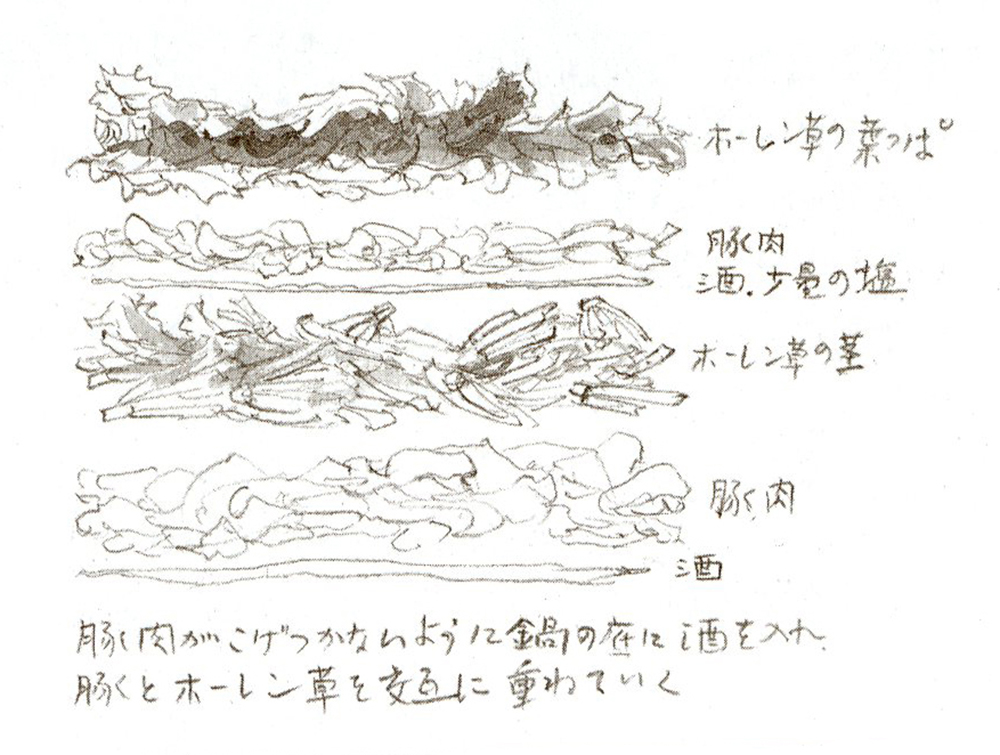 ホーレン草の葉っぱ
豚肉
酒、少量の塩
ホーレン草の茎
豚肉
酒
豚肉がこげつかないように鍋の底に酒を入れ
豚とホーレン草を交互に重ねていく